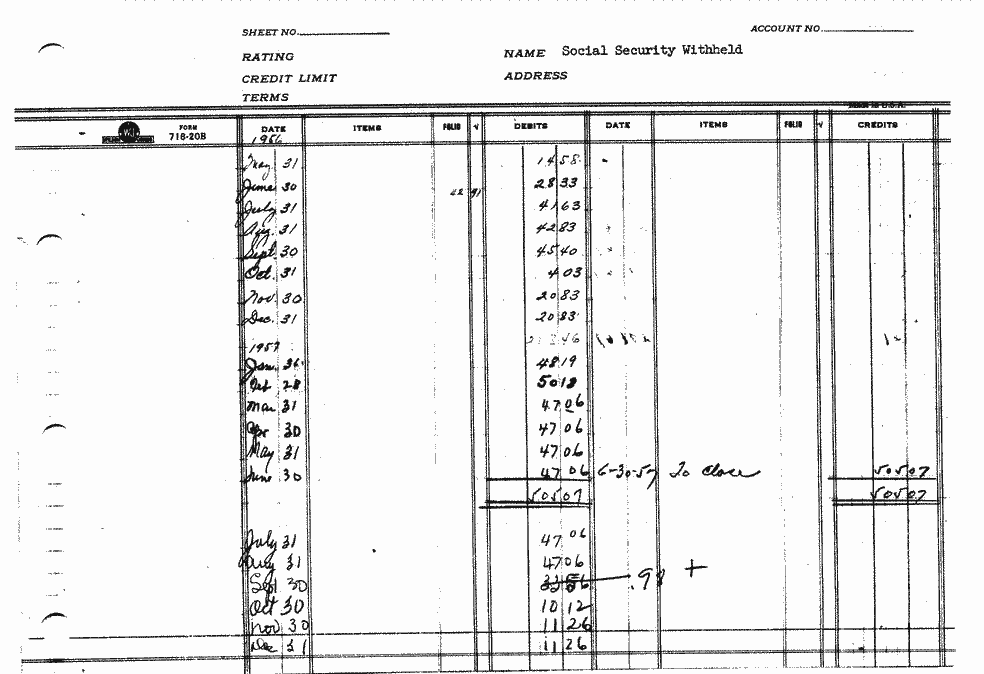 SHEET NO. ACCOUNT NO.
RATING NAME Social Security Withheld
CREDIT LIMIT ADDRESS
TERMS
FORM 718-20B DATE ITEMS FOLIO √ DEBITS DATE ITEMS FOLIO √ CREDITS
1956
May 31 14 58
June 30 28 33
July 31 41 63
Aug. 31 42 83
Sept. 30 45 40
Oct. 31 4 03
Nov. 30 20 83
Dec. 31 20 83
1957
Jan. 48 19
Feb 28 50 18
Mar 31 47 06
Apr 30 47 06
May 31 47 06
June 30 47 06 6-30-57 To close 505 07
505 07 505 07
July 31 47 06
Aug 31 47 06
Sept 30 .98 +
Oct 30 10 12
Nov 30 11 26
Dec 31 11 26